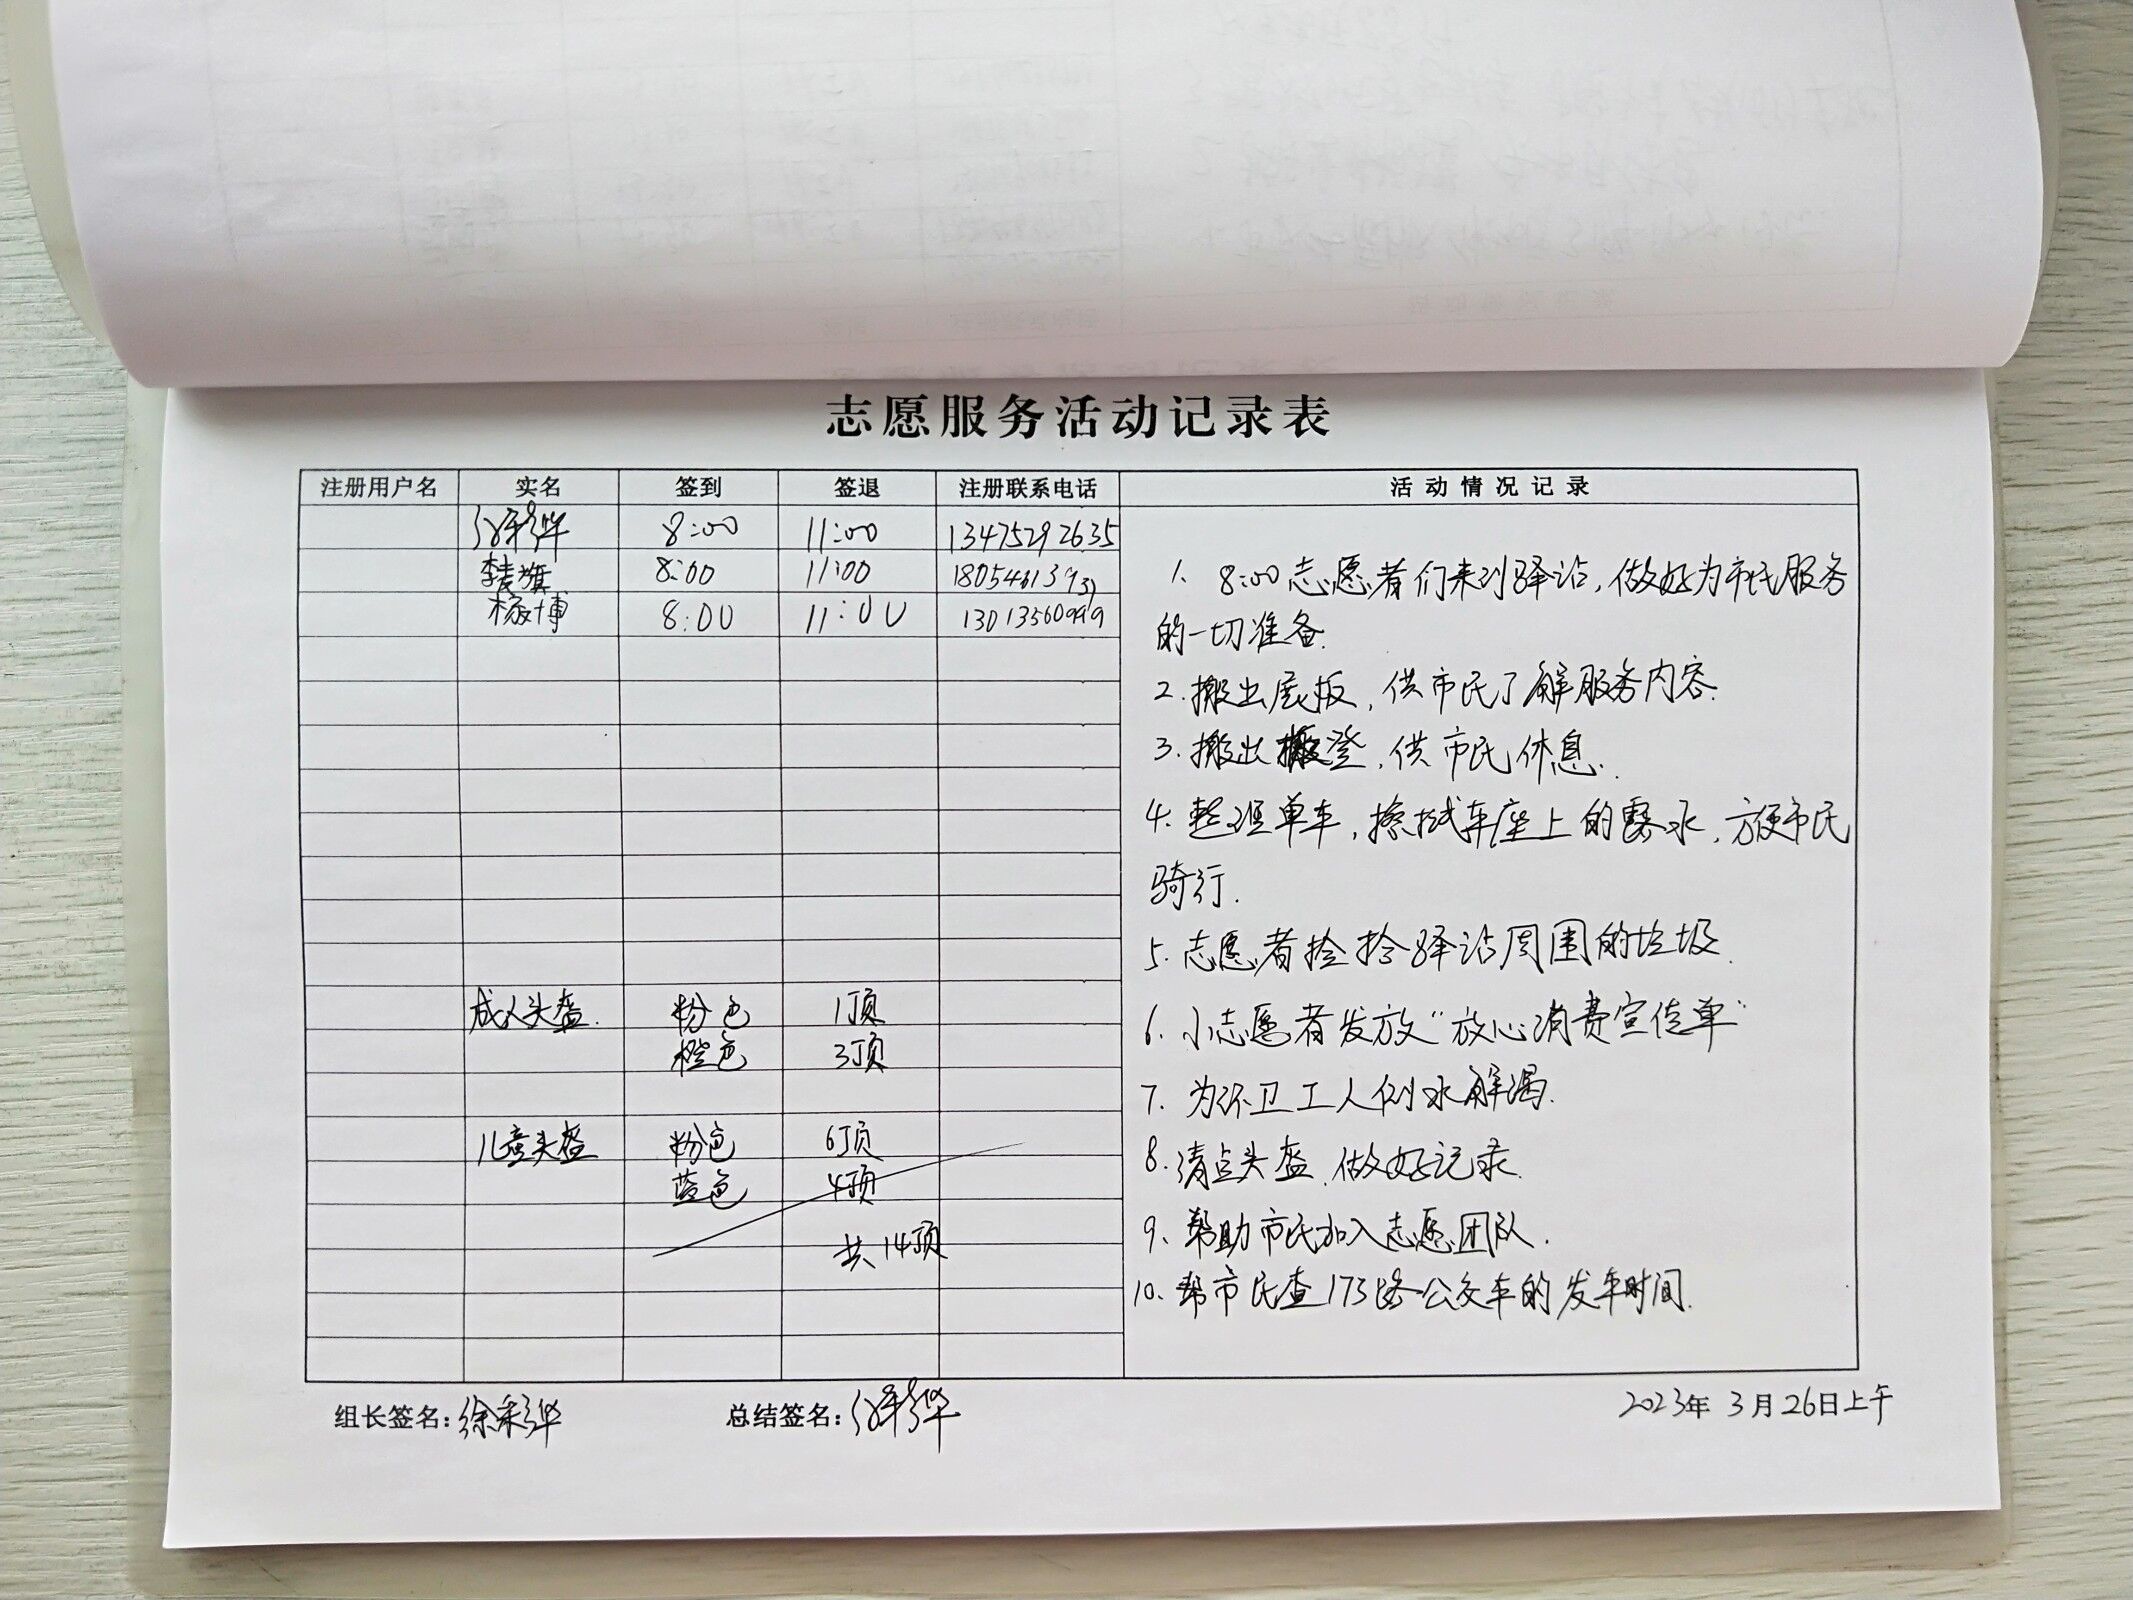 志愿服务活动记录表
注册用户名 实名 签到 签退 注册联系电话 活动情况记录
8:00 11:00 13475292635
8:00 11:00
杨博 8:00 11:00
1. 8:00志愿者们来到驿站,做好为市民服务
的一切准备.
2.搬出展板,供市民了解服务内容.
3.搬出 登,供市民休息.
4.整理单车,擦拭车座上的露水,方便市民
骑行.
5.志愿者捡拾驿站周围的垃圾.
6.小志愿者发放“放心消费宣传单”
7.为环卫工人倒水解渴.
8.清点头盔,做好记录.
9.帮助市民加入志愿团队.
10.帮市民查173路公交车的发车时间.
成人头盔. 粉色 1顶
橙色 3顶
儿童头盔 粉色 6顶
蓝色 4顶
共14顶
组长签名:徐彩华 总结签名: 2023年3月26日上午